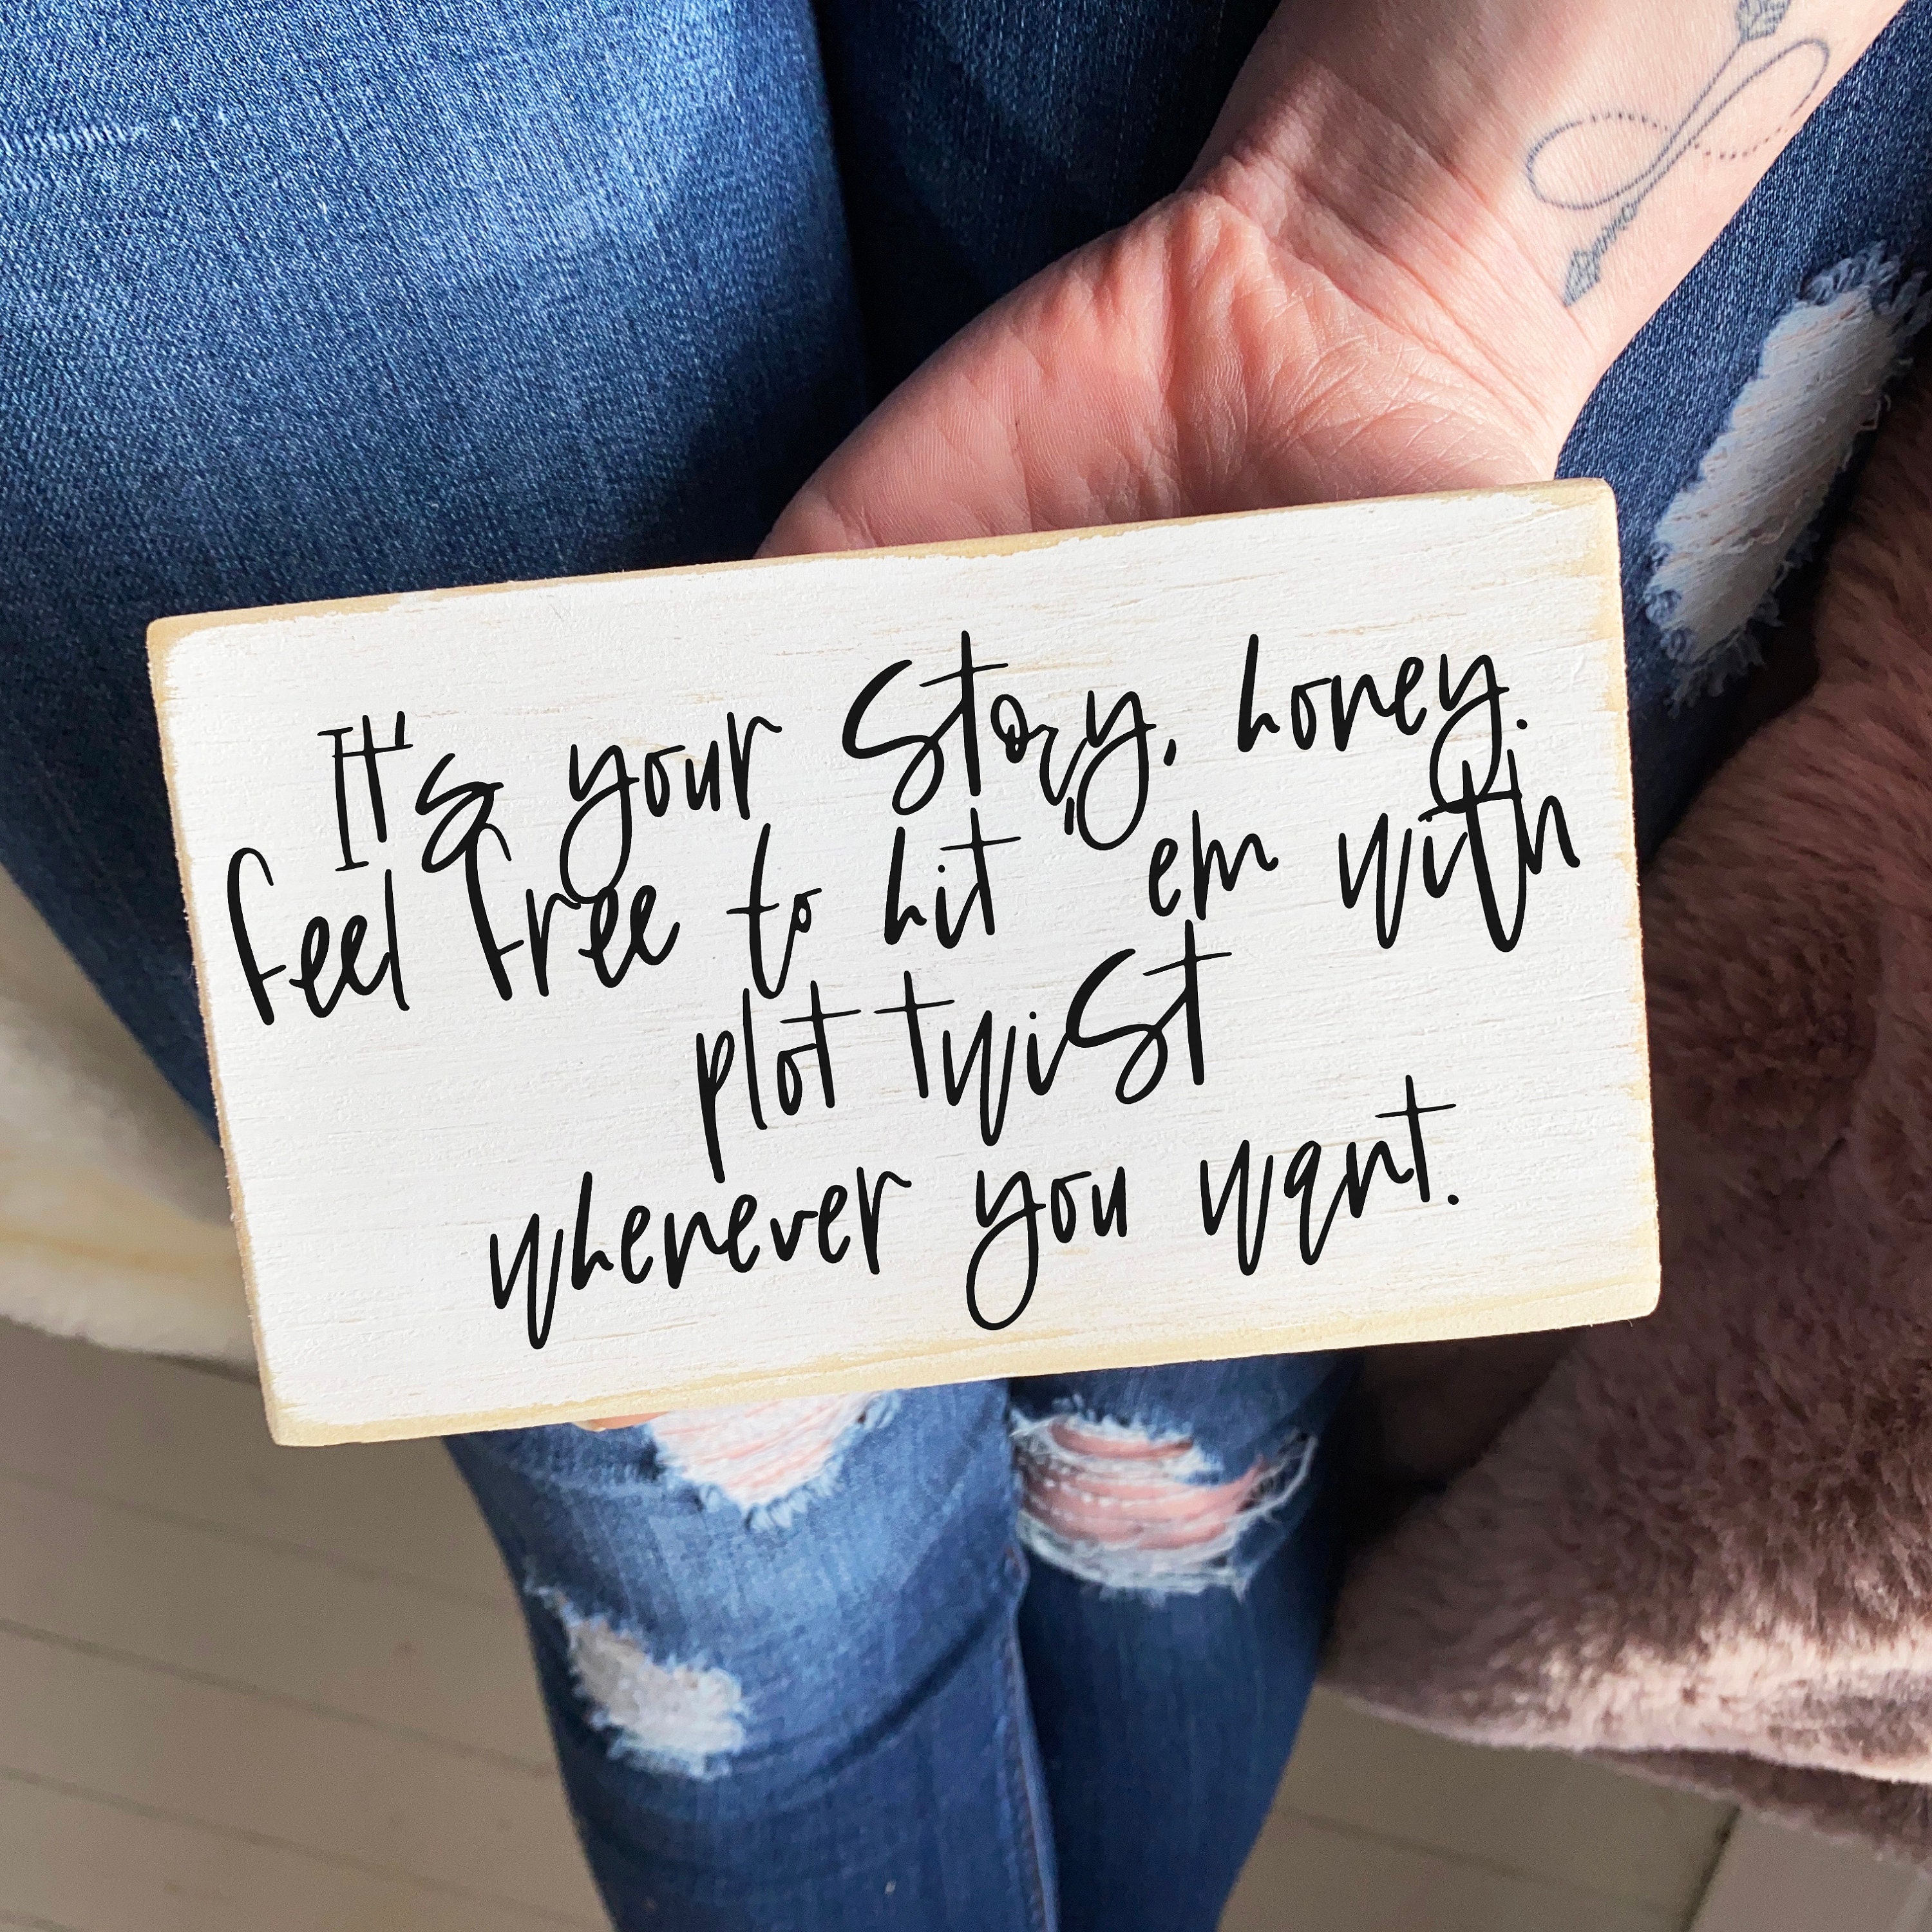 It's your Story, honey.
feel free to hit 'em with
plot twist
whenever you want.